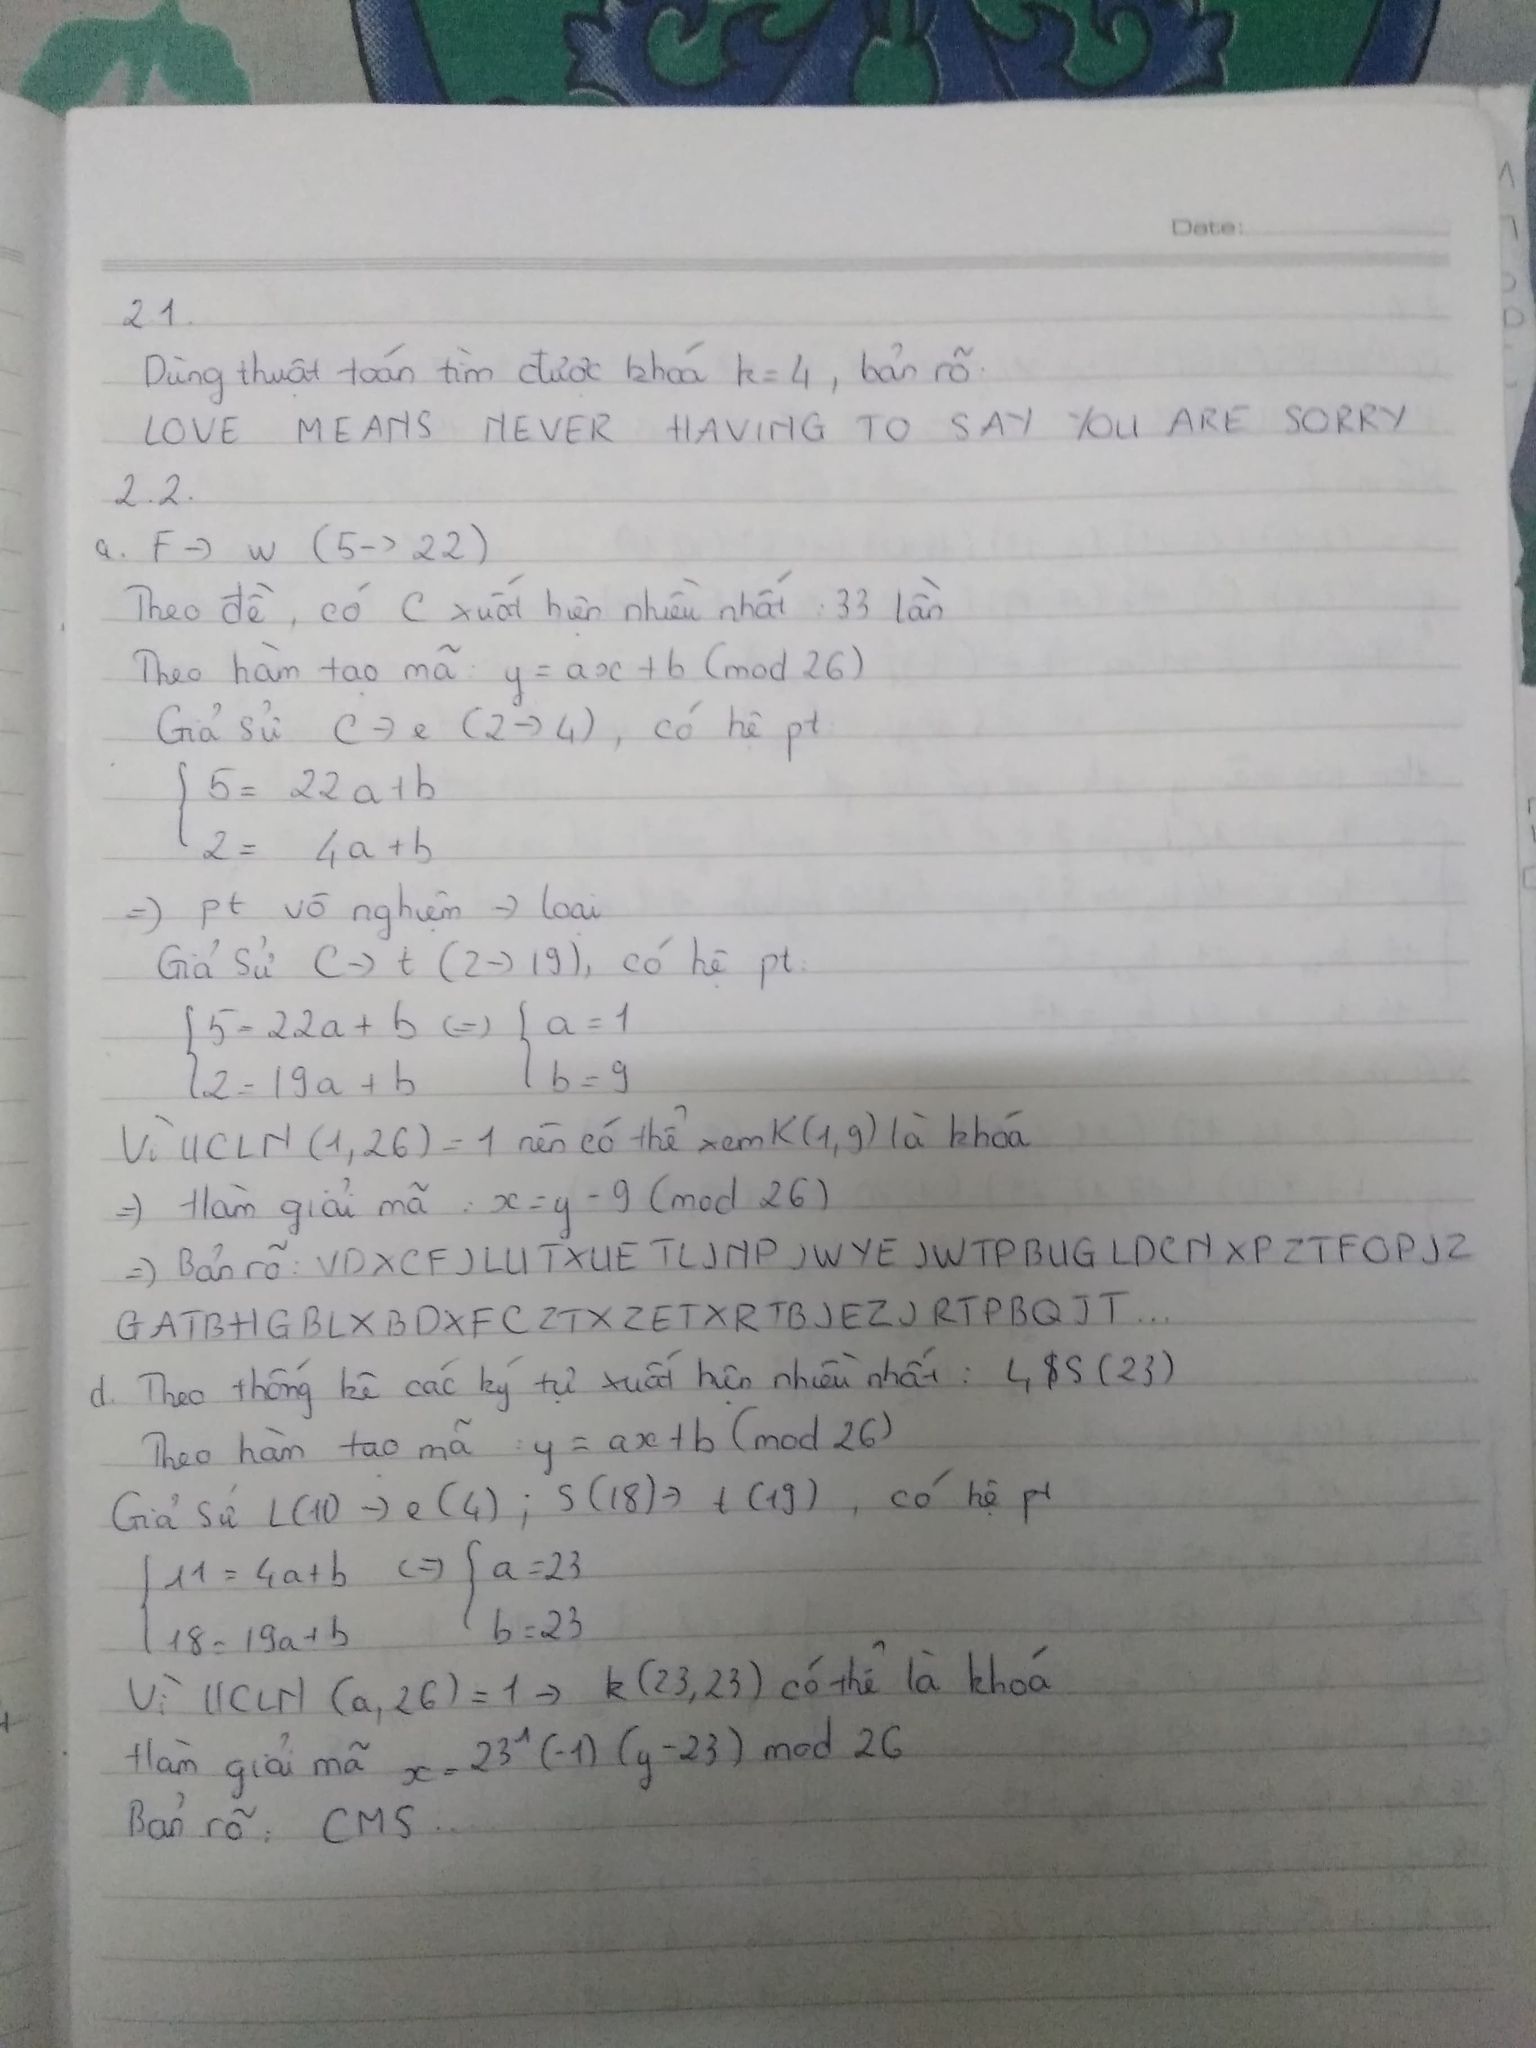 Date:
2.1.
Dùng thuật toán tìm được khoá k=4, bản rõ:
LOVE MEANS NEVER HAVING TO SAY YOU ARE SORRY
2.2.
a. F→ w (5→22)
Theo đề, có C xuất hiện nhiều nhất: 33 lần
Theo hàm tạo mã: y = ax + b (mod 26)
Giả sử C→ e (2→4), có hệ pt:
5 = 22a+b
2 = 4a+b
=) pt vô nghiệm → loại
Giả sử C→ t (2→19), có hệ pt:
{5=22a+b (=) {a=1
2=19a+b b=9
Vì ƯCLN (1,26)=1 nên có thể xem K(1,9) là khoá
=) Hàm giải mã: x=y-9 (mod 26)
=) Bản rõ: VDXCFJLUTXUETLJNPJWYEJWTPBUGLDCNXPZTFOPJZ
GATBHGBLXBDXFCZTXZETXRTBJEZJRTPBQJT...
d. Theo thống kê các ký tự xuất hiện nhiều nhất: S(23)
Theo hàm tạo mã: y = ax+b (mod 26)
Giả sử L(11) → e(4); S(18)→ t(19), có hệ pt
{11=4a+b (=) {a=23
18=19a+b b=23
Vì ƯCLN (a,26)=1 → k(23,23) có thể là khoá
Hàm giải mã x=23^1(-1) (y-23) mod 26
Bản rõ: CMS...